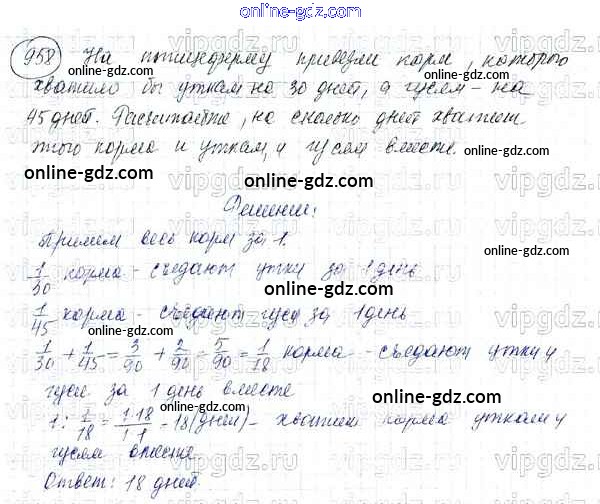 958 На птицеферму привезли корм, которого
хватило бы уткам на 30 дней, а гусям - на
45 дней. Рассчитайте, на сколько дней хватит
этого корма и уткам, и гусям вместе.
Решение:
Примем весь корм за 1.
1/30 корма - съедают утки за 1 день
1/45 корма - съедают гуси за 1 день
1/30 + 1/45 = 3/90 + 2/90 = 5/90 = 1/18 корма - съедают утки и
гуси за 1 день вместе
1 : 1/18 = 1·18/1·1 = 18 (дней) - хватит корма уткам и
гусям вместе
Ответ: 18 дней.
online-gdz.com
online-gdz.com
online-gdz.com
online-gdz.com
online-gdz.com
online-gdz.com
online-gdz.com
online-gdz.com
online-gdz.com
online-gdz.com
online-gdz.com
online-gdz.com